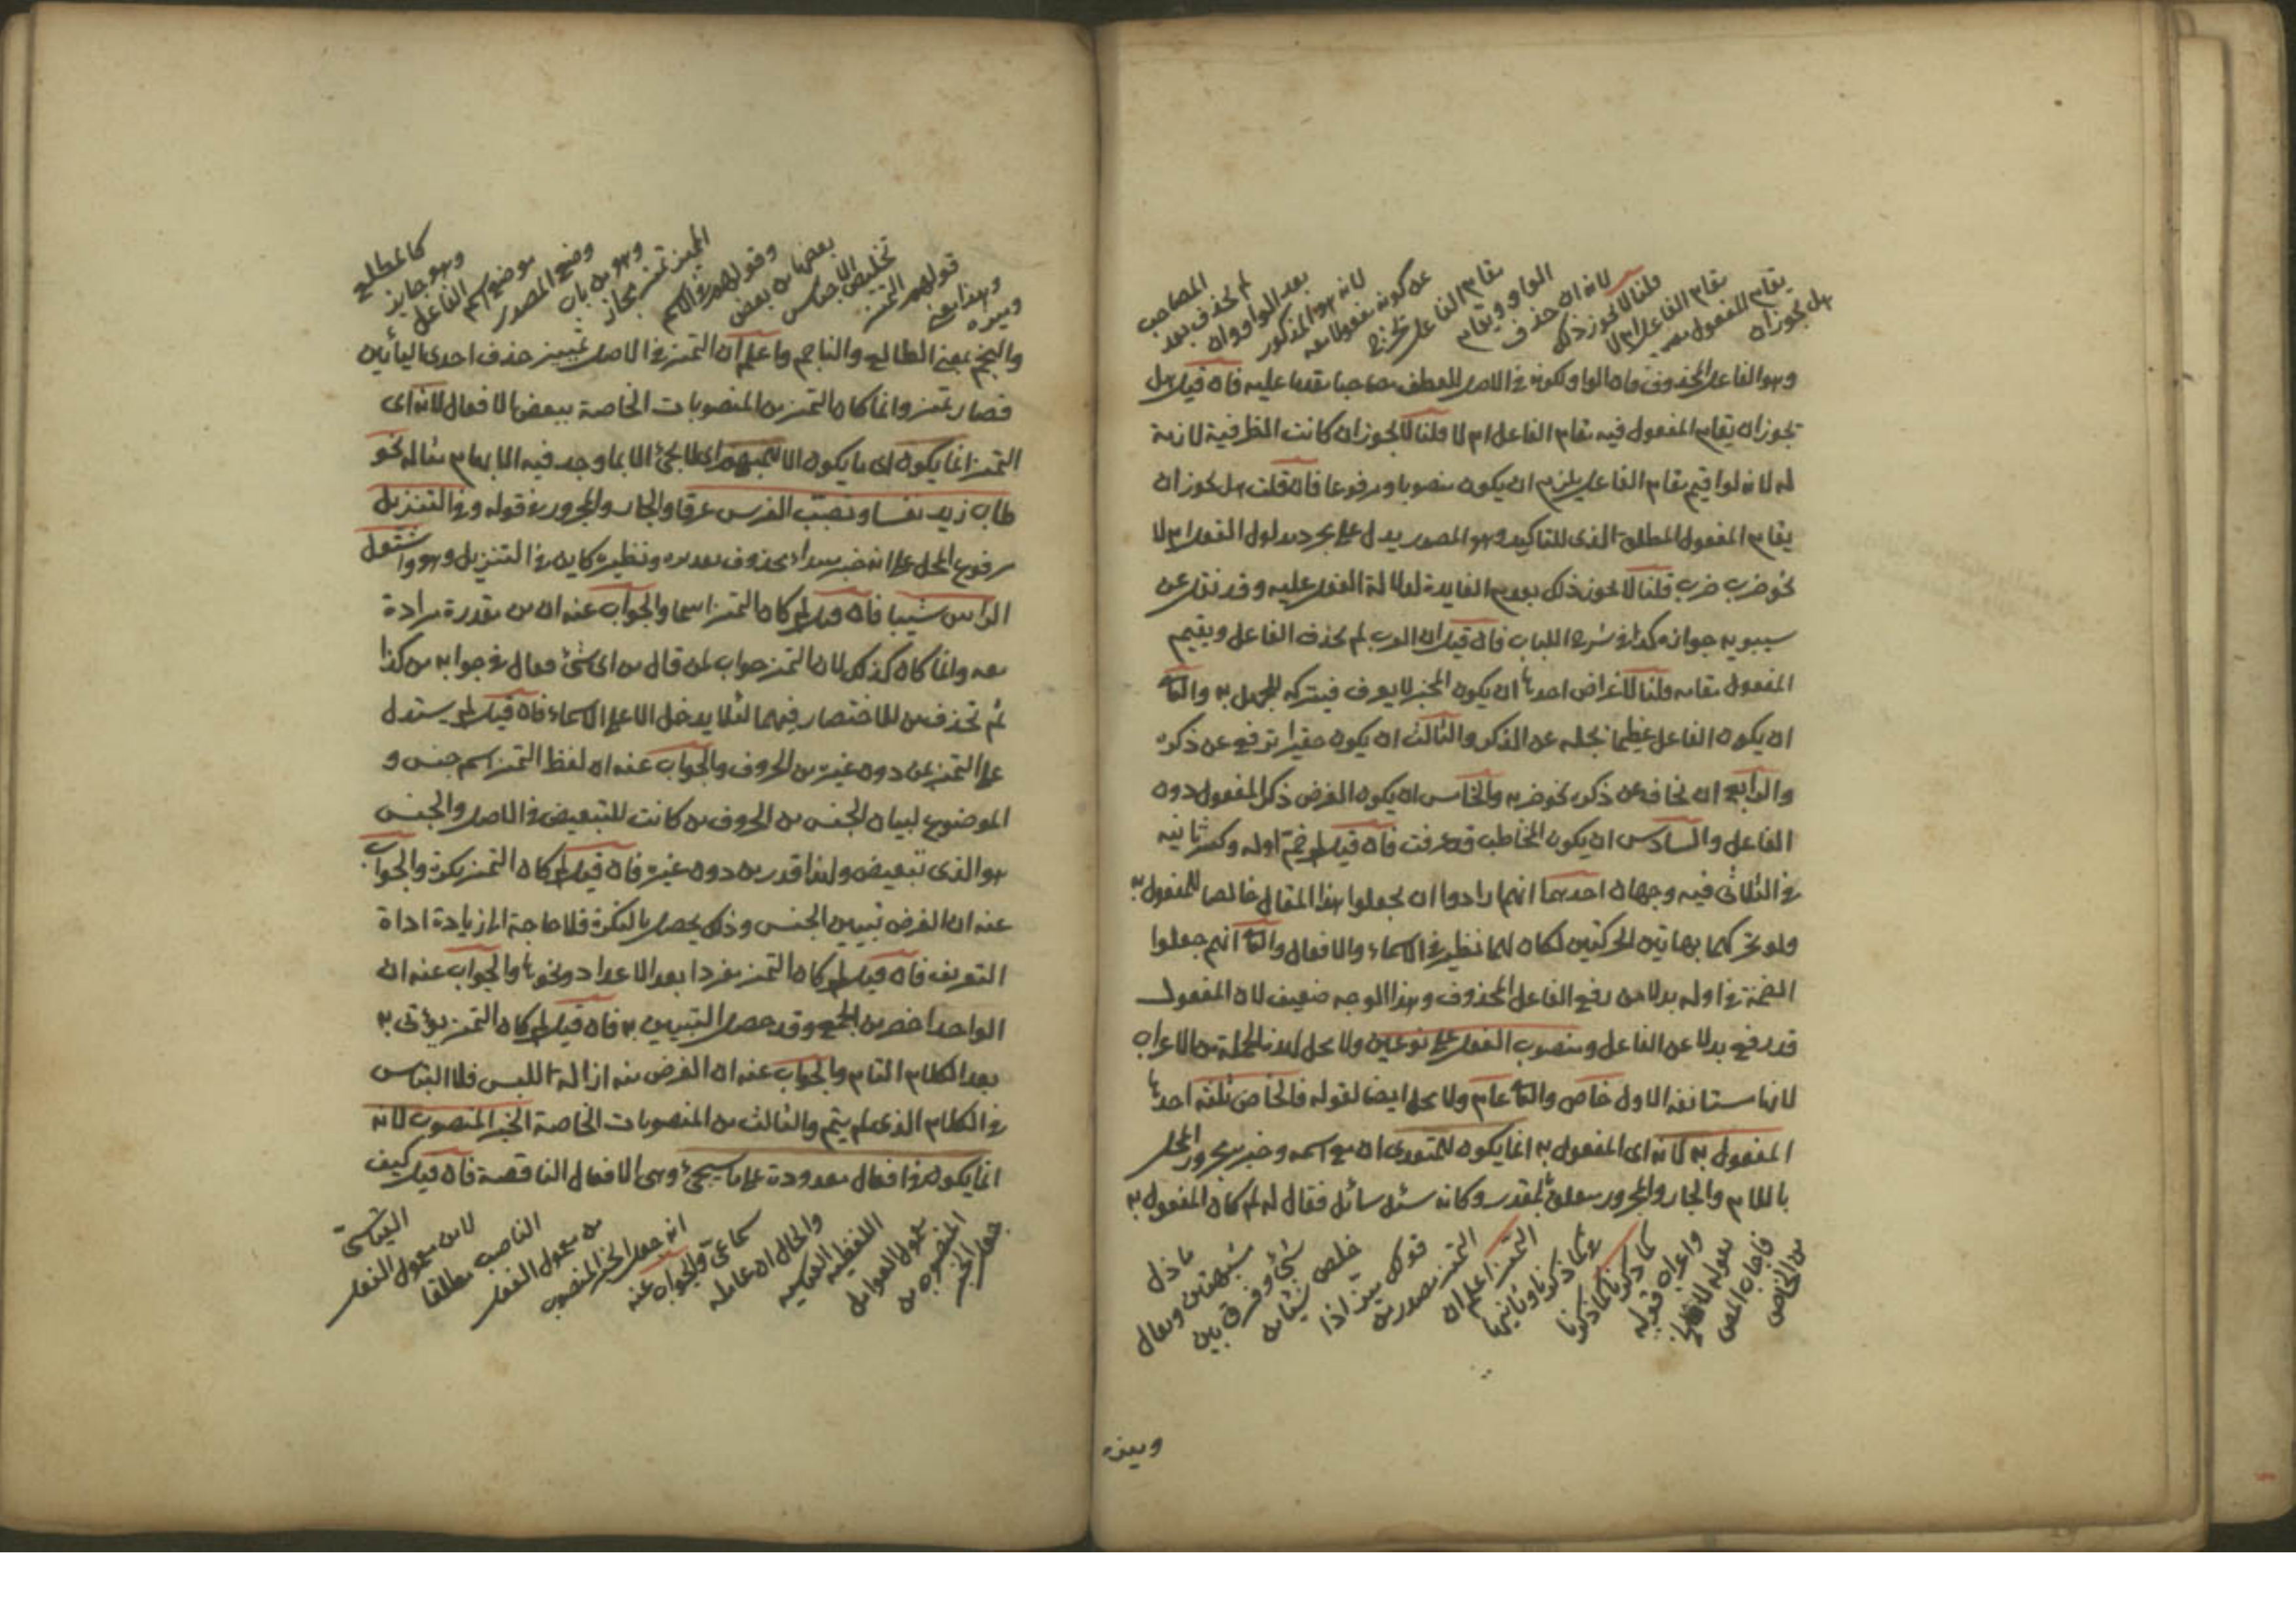 هل يجوز ان
يقام المفعول معه
مقام الفاعل ام لا
قلنا لا يجوز ذلك
لانه ان حذف
الواو ويقام
مقام الفاعل يخرج
عن كونه مفعولا معه
لانه هو المذكور
بعد الواو وان
لم يحذف بعد
المصاحب
وهو الفاعل المحذوف فان الواو لكونه في الاصل للعطف مصاحبا مقدما عليه فان قيل هل
يجوز ان يقام المفعول فيه مقام الفاعل ام لا قلنا لا يجوز ان كانت الظرفية لازمة
له لانه لو اقيم مقام الفاعل يلزم ان يكون منصوبا ومرفوعا فان قلت هل يجوز ان
يقام المفعول المطلق الذى للتاكيد وهو المصدر يدل على مجرد مدلول الفعل ام لا
نحو ضرب ضرب قلنا لا يجوز ذلك بعدم الفايدة لدلالة الفعل عليه وقد نقل عن
سيبويه جوازه كذا في شرح اللباب فان قيل ان العرب لم يحذف الفاعل ويقيم
المفعول مقامه قلنا لاغراض احدها ان يكون المخبر لا يعرف فيتركه للجهل به والثانى
ان يكون الفاعل عظيما نجله عن الذكر والثالث ان يكون حقيرا ترفع عن ذكره
والرابع ان تخاف عن ذكره نحو ضربه والخامس ان يكون الغرض ذكر المفعول دون
الفاعل والسادس ان يكون المخاطب قد عرفت فان قيل لم ضم اوله وكسر ثانيه
في الثلاثى فيه وجهان احدهما انهم ارادوا ان يجعلوا هذا المقال خالصا للمفعول به
ولو تحركهما بهاتين الحركتين لكان لهما نظير في الاسماء والافعال والثانى انهم جعلوا
الضمة في اوله بدلا من رفع الفاعل المحذوف وهذا الوجه ضعيف لان المفعول
قد رفع بدلا عن الفاعل ومنصوب الفعل على نوعين ولا محل لهذه الجملة من الاعراب
لانها مستانفة الاول خاص والثانى عام ولا محل ايضا لقوله فالخاص ثلثة احدها
المفعول به لانه اى المفعول به انما يكون للمتعدى ان مع اسمه وخبره مجرور المحل
باللام والجار والمجرور متعلق بمقدر وكانه سئل سائل فقال له لم كان المفعول به
من الخاص
فاجاب المص
بقوله لانه
واعراب قوله
كما ذكرنا
التميز اعلم ان
التميز مصدر من
قولك ميز اذا
خلص شيئا من
شئ وفرق بين
شيئين ويقال
ماذل
وميزه
وميزه
وهذا معنى
قولهم التميز
تخليص الاجناس
بعضها من بعض
وقولهم في الاسم
المميز تميز مجاز
وهو من باب
وضع المصدر
موضع اسم الفاعل
وهو جايز
كالمطلع
والنجم بمعنى الطالع والناجم واعلم ان التميز في الاصل تمييز حذف احدى اليأين
فصار تميز وانما كان التميز من المنصوبات الخاصة ببعض الافعال لانه اى
التميز انما يكون اى ما يكون الا للمبهم اى لا يجئ الا بما وجد فيه الابهام مثاله نحو
طاب زيد نفسا وتصبب الفرس عرقا والجار والمجرور في قوله وفي التنزيل
مرفوع المحل على انه خبر مبتداء محذوف تقديره ونظيره كاين في التنزيل وهو واشتعل
الراس شيبا فان قيل لم كان التميز اسما والجواب عنه ان من مقدرة مرادة
معه وانما كان كذلك لان التميز جواب لمن قال من اى شئ فقال في جوابه من كذا
ثم تحذف من للاختصار فيهما لئلا يدخل الا على الاسماء فان قيل لم يستدل
على التميز بمن دون غيره من الحروف والجواب عنه ان لفظ التميز اسم جنس و
الموضوع لبيان الجنس من الحروف من كانت للتبعيض في الاصل والجنس
هو الذى تبعيض ولهذا قدر من دون غيره فان قيل لم كان التميز نكرة والجواب
عنه ان الغرض تبيين الجنس وذلك يحصل بالنكرة فلا حاجة الى زيادة اداة
التعريف فان قيل لم كان التميز مفردا بعد الاعداد ونحوها والجواب عنه ان
الواحد اخصر من الجمع وقد حصل التبيين به فان قيل لم كان التميز يؤتى به
بعد الكلام التام والجواب عنه ان الغرض منه ازالة اللبس فلا التباس
في الكلام الذى لم يتم والثالث من المنصوبات الخاصة الخبر المنصوب لانه
انما يكون في افعال معدودة على ما سيجئ وهى الافعال الناقصة فان قيل كيف
جعل الخبر
المنصوب من
معمول العوامل
اللفظية القياسية
والحال ان عامله
سماعى والجواب عنه
انه جعل الخبر المنصوب
من معمول الفعل
الناصب مطلقا
لا من معمول الفعل
القياسى